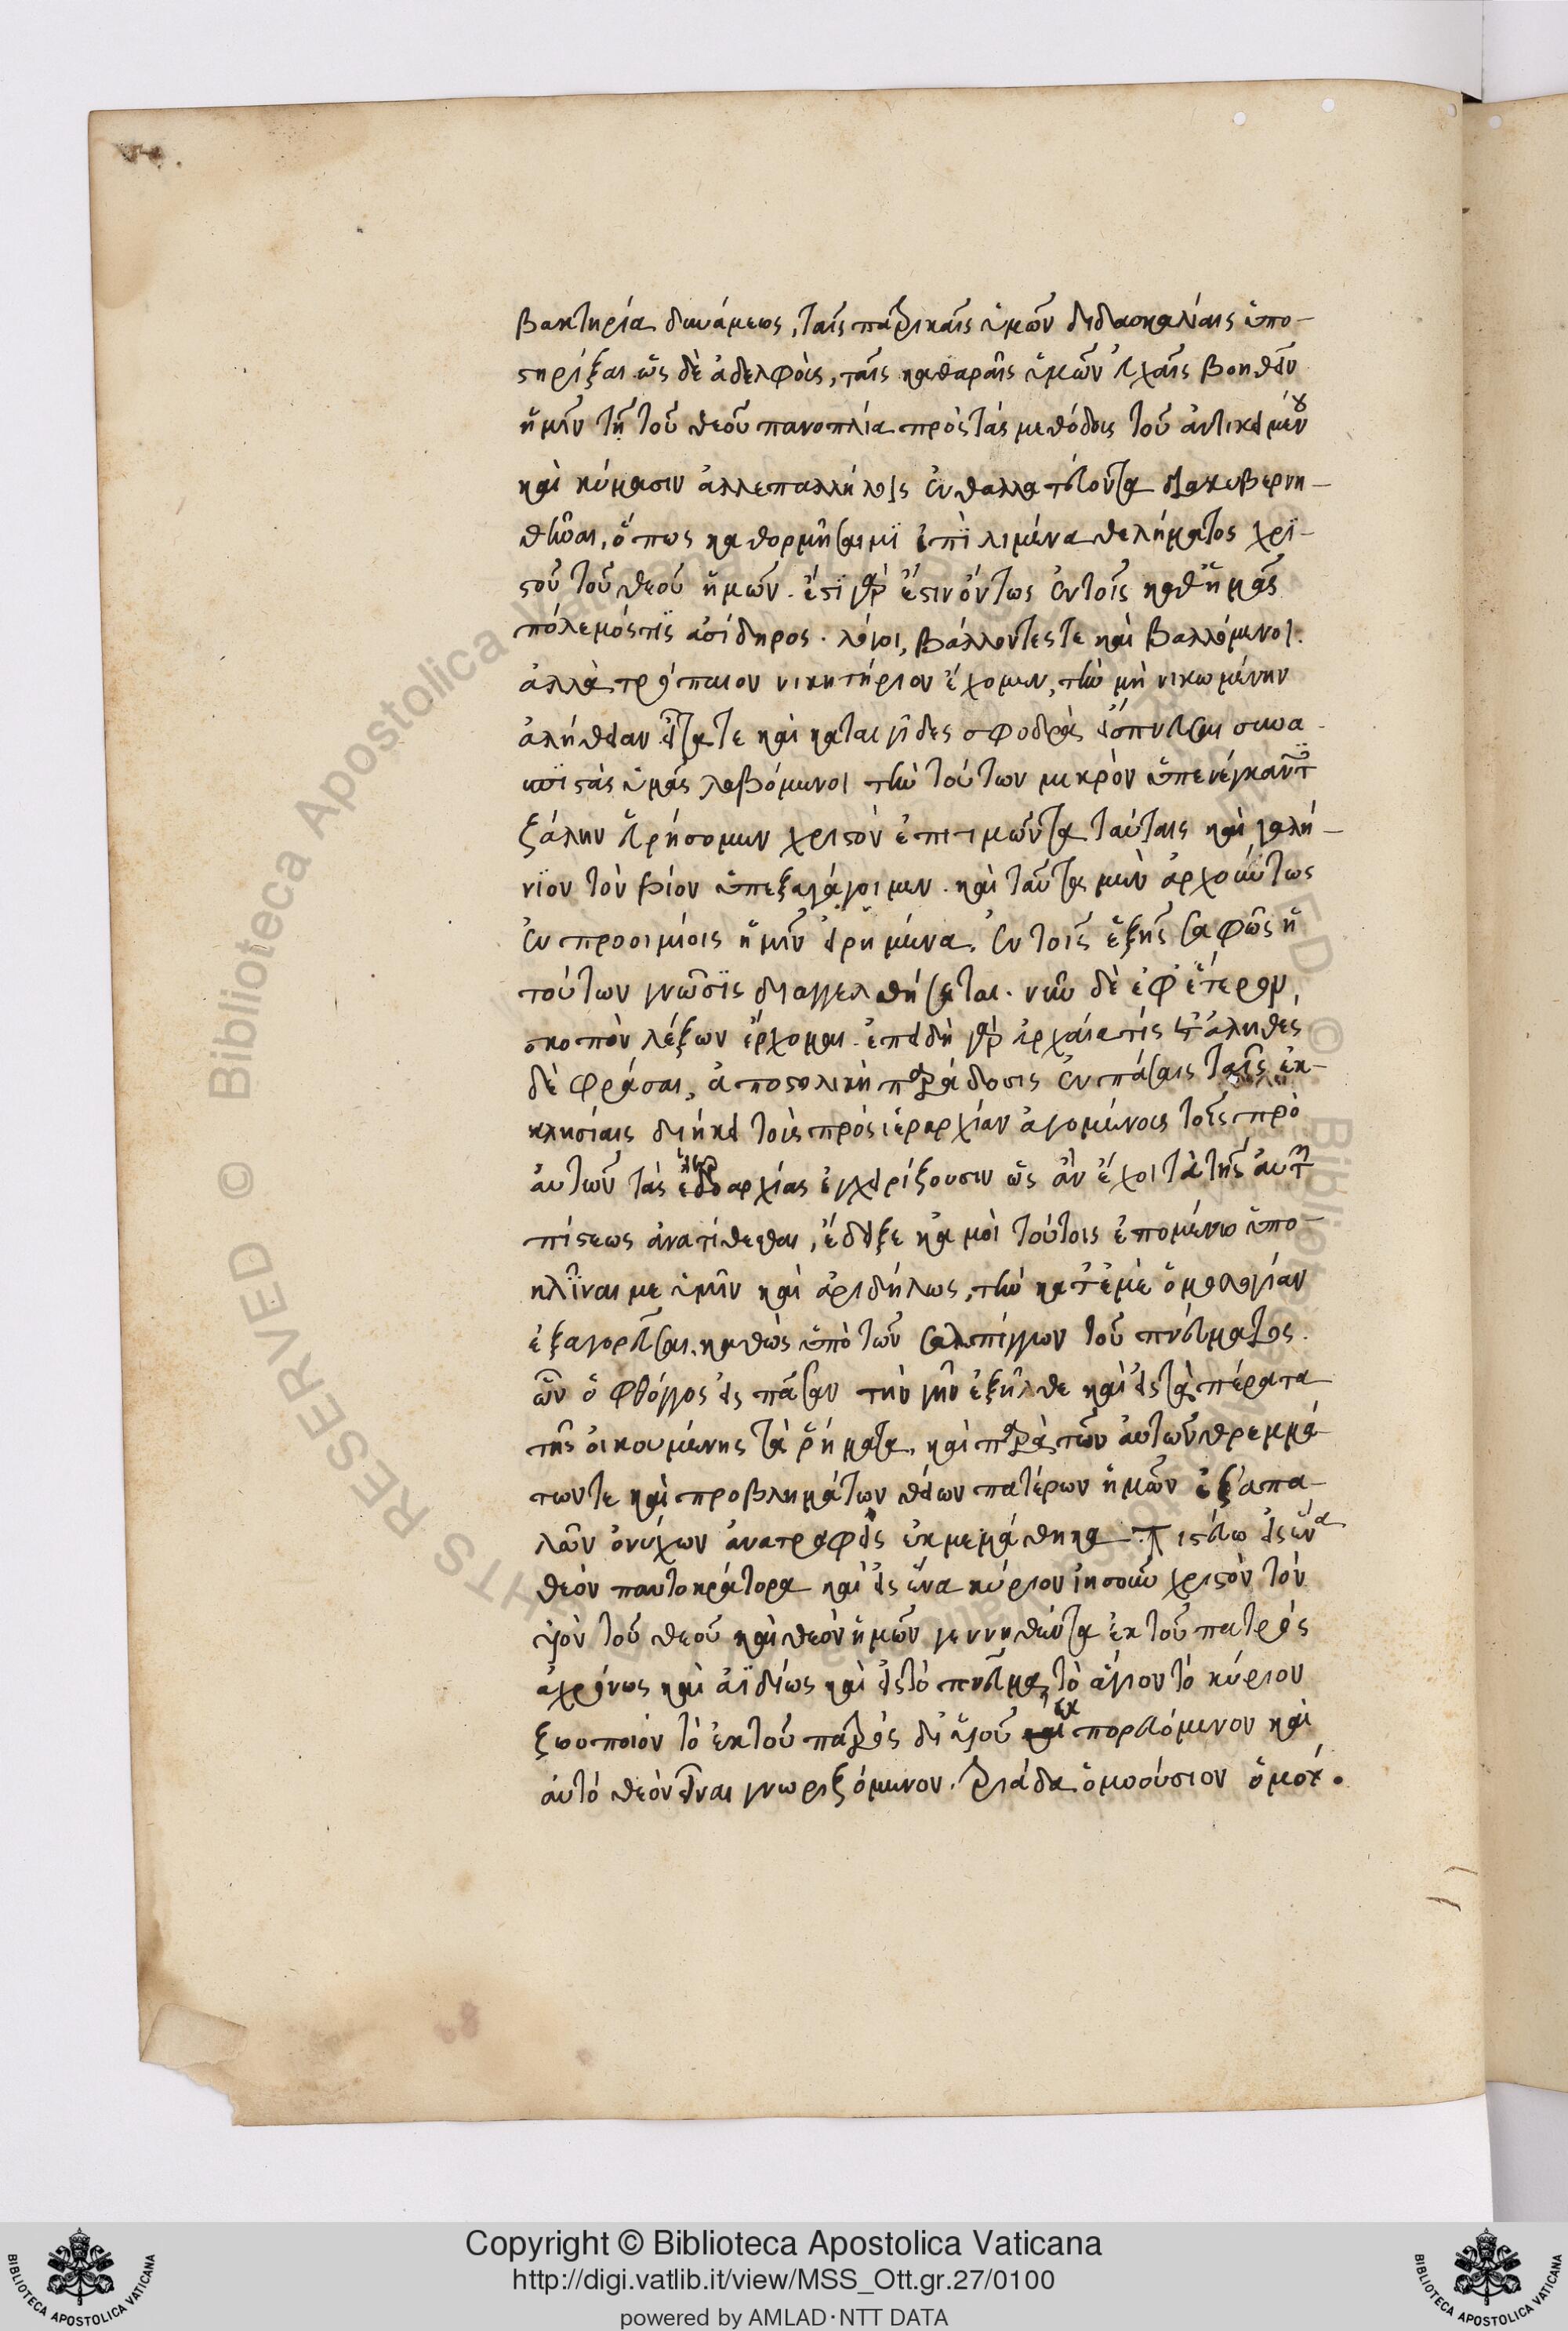 βακτηρία δυνάμεως, ταῖς πατρικαῖς ὑμῶν διδασκαλίαις ὑπο-
στηρίξαι. ὡς δὲ ἀδελφοὺς, ταῖς καθαραῖς ὑμῶν εὐχαῖς βοηθεῖν
ἡμῖν τῇ τοῦ θεοῦ πανοπλία πρὸς τὰς μεθόδους τοῦ ἀντικειμένου
καὶ κύμασιν ἀλλεπαλλήλοις ἐνθαλαττεύοντα διακυβερνη-
θῆναι, ὅπως καθορμήσαιμϊ ἐπῒ λιμένα θελήματος χρι-
στοῦ τοῦ θεοῦ ἡμῶν. ἔστϊ γὰρ ἔστιν ὄντως ἐν τοῖς καθ ἡμᾶς
πόλεμός τϊς ἀσίδηρος. λόγοι, βάλλοντές τε καὶ βαλλόμενοι.
ἀλλὰ τρόπαιον νικητήριον ἔχομεν, τὴν μὴ νικωμένην
ἀλήθειαν. εἶτα τε καὶ καταιγίδες σφοδρὰς εἰσπνεῦσαι συνα-
ϊστὰς ὑμᾶς λαβόμενοι τὴν τούτων μικρὸν ὑπενέγκαντ
ζάλην εὑρήσομεν χριστὸν ἐπιτιμῶντα ταύταις καὶ γαλή-
νϊον τὸν βίον ὑπεξαγάγοιμεν. καὶ ταῦτα μὲν ἀρχοειδῶς
ἐν προοιμίοις ἡμῖν εἰρημένα. ἐν τοῖς ἑξῆς σαφῶς ἡ
τούτων γνῶσϊς διαγγελθήσεται. νῦν δὲ ἐφ ἕτερον,
σκοπὸν λέξων ἔρχομαι. ἐπειδὴ γὰρ ἀρχαία τίς ἀληθὲς
δὲ φράσαι, ἀποστολικὴ παράδοσις ἐν πάσαις ταῖς ἐκ-
κλησίαις διήκει τοὺς πρὸς ἱεραρχίαν ἀγομένους τοῖς πρὸ
αὐτῶν τὰς ἱεραρχίας ἐγχειρίζουσιν ὡς ἂν ἔχοι τὰ τῆς αὐτῶν
πίστεως ἀνατίθεσθαι, ἔδοξε κα μοὶ τούτοις ἑπομένω ὑπο-
κλῖναι με ὑμῖν καὶ ἀριδήλως, τὴν κατ ἐμὲ ὁμολογίαν
ἐξαγορεῦσαι. καθὼς ὑπὸ τῶν σαλπίγγων τοῦ πνεύματος.
ὧν ὁ φθόγγος εἰς πᾶσαν τὴν γῆν ἐξῆλθε καὶ εἰς τὰ πέρατα
τῆς οἰκουμένης τὰ ῥήματα, καὶ παρὰ τῶν αὐτῶν θρεμμά
των τε καὶ προβλημάτων θείων πατέρων ἡμῶν ἐξ ἁπα-
λῶν ὀνύχων ἀνατραφεὶς ἐκμεμάθηκα. Πιστεύω εἰς ἕνα
θεὸν παντοκράτορα καὶ εἰς ἕνα κύριον ἰησοῦν χριστὸν τὸν
υἱὸν τοῦ θεοῦ καὶ θεὸν ἡμῶν γεννηθέντα ἐκ τοῦ πατρὸς
ἀχρόνως καὶ ἀϊδίως καὶ εἰς τὸ πνεῦμα τὸ ἅγιον τὸ κύριον
ζωοποιὸν τὸ ἐκ τοῦ πατρὸς δι υἱοῦ ἐκπορευόμενον καὶ
αὐτὸ θεὸν εἶναι γνωριζόμενον. τριάδα ὁμοούσιον
Copyright © Biblioteca Apostolica Vaticana
http://digi.vatlib.it/view/MSS_Ott.gr.27/0100
powered by AMLAD·NTT DATA